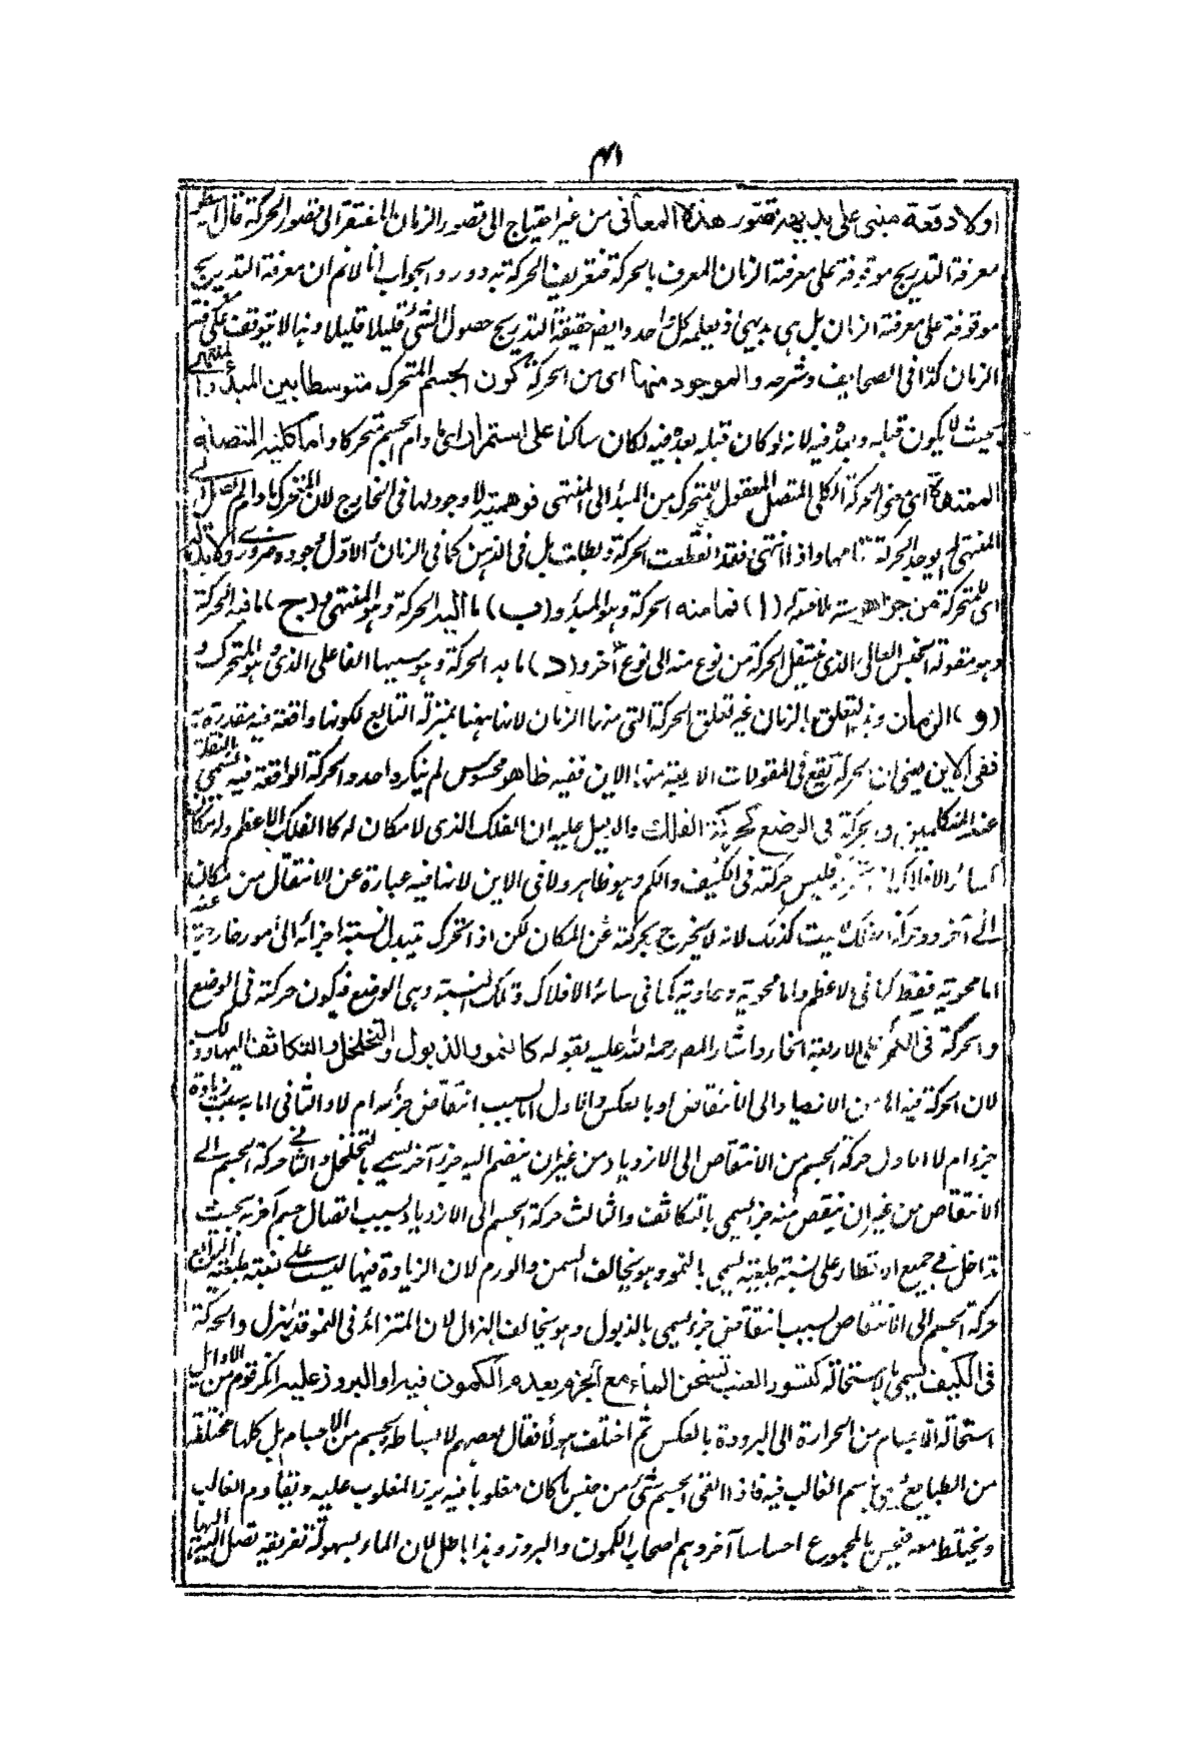 ٤١
او لا دفعة مبنى على بديهة تصور هذه المعانى من غير احتياج الى تصور الزمان المفتقر الى تصور الحركة قال
معرفة التدريج موقوفة على معرفة الزمان المعرف بالحركة فتعريف الحركة به دور والجواب انا لانم ان معرفة التدريج
موقوفة على معرفة الزمان بل هى بديهى اذ يعلمه كل احد وايضا حقيقة التدريج حصول الشئ قليلا قليلا وهذا لا يتوقف على معرفة
الزمان كذا فى الصحايف وشرحه والموجود منها اى من الحركة كون الجسم المتحرك متوسطا بين المبدأ والمنتهى
بحيث لا يكون قبله وبعده فيه لانه لو كان قبله بعده فيه لكان ساكنا على استمرار اى مادام الجسم متحركا واما كليته المتصلة
اى الحركة الكلى المتصل المعقول للمتحرك من المبدأ الى المنتهى فوهمية لا وجود لها فى الخارج لان المتحرك مادام لم يصل الى
المنتهى لم يوجد الحركة تمامها واذا انتهى فقد انقطعت الحركة وبطلت بل فى الذهن كما فى الزمان الاول موجوده ضرورى ولابد لها
اى للحركة من ستة (ا) فمامنه الحركة وهو المبدأ و(ب) ما اليه الحركة وهو المنتهى و(ج) ما فيه الحركة
وهو مقولة الجنس العالى الذى ينتقل الحركة من نوع منه الى نوع آخر و(د) ما به الحركة وهو سببها الفاعلى الذى وهو المتحرك و
(و) الزمان وهذا التعلق بالزمان غير تعلق الحركة التى منها الزمان لانها ههنا بمنزلة التابع لكونها واقعة فيه مقدرة به
ففى الاين يعنى ان الحركة تقع فى المقولات الاربعة منها الاين ففيه ظاهر محسوس لم ينكره احد والحركة الواقعة فيه يسمى بالنقلة
عند المتكلمين والحركة فى الوضع كحركة الفلك والدليل عليه ان الفلك الذى لا مكان له كالفلك الاعظم وله مكان
كسائر الافلاك فليس حركته فى الكيف والكم وهو ظاهر ولا فى الاين لانها فيه عبارة عن الانتقال من مكان
الى آخر وحركة الفلك ليست كذلك لانه لا يخرج بحركته عن المكان لكن اذا تحرك تبدل نسبة اجزائه الى امور خارجة عنه
اما محوية فقط كما فى الاعظم واما محوية وحاوية كما فى سائر الافلاك وتلك النسبة وهى الوضع فيكون حركته فى الوضع
والحركة فى الكم على الاربعة انحاء واشار المص رحمة الله عليه بقوله كالنمو والذبول والتخلخل والتكاثف اليها وذلك
لان الحركة فيه اما من الازدياد الى الانتقاص او بالعكس والاول اما بسبب انتقاص جزء ام لا والثانى اما بسبب زيادة
جزء ام لا الاول حركة الجسم من الانتقاص الى الازدياد من غير ان ينضم اليه جزء آخر يسمى بالتخلخل والثانى حركة الجسم الى
الانتقاص من غير ان ينقص منه جزء يسمى بالتكاثف والثالث حركة الجسم الى الازدياد بسبب اتصال جسم آخر به بحيث
تداخل فى جميع اقطاره على نسبة طبيعية يسمى بالنمو وهو يخالف السمن والورم لان الزيادة فيها ليست على نسبة طبيعية الرابع
حركة الجسم الى الانتقاص لسبب انتقاص جزء يسمى بالذبول وهو يخالف الهزال لان المتزائد فى النمو قد يهزل والحركة
فى الكيف يسمى بالاستحالة كتسود العنب تسخن الماء مع الجزم بعدم الكمون فيه او البروز عليه انكر قوم من الاوائل
استحالة الاجسام من الحرارة الى البرودة بالعكس ثم اختلف هؤلاء فقال بعضهم لا بساطة بجسم من الاجسام بل كلها مختلفة
من الطبايع باسم الغالب فيه فاذا القى الجسم شئ من جنس ما كان مغلوبا فيه يبرز المغلوب عليه ويقاوم الغالب
ويختلط معه فيحس بالمجموع احساسا آخر وهم اصحاب الكمون والبروز وهذا باطل لان الماء بسهولة تفريقه تصل اليد